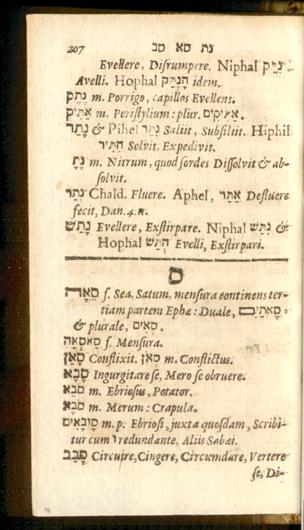 207 נת סא סב
Evellere, Disrumpere. Niphal נִתַּק
Avelli. Hophal הָנְתַּק idem.
נֶתֶק m. Porrigo, capillos Evellens.
אַתִּיק m. Peristylium: plur. אַתִּיקִים.
נָתַר & Pihel נִתַּר Saliit, Subsiliit. Hiphil
הִתִּיר Solvit. Expedivit.
m. Nitrum, quod sordes Dissolvit & ab-
solvit.
נְתַר Chald. Fluere. Aphel, אַתַּר Defluere
fecit, Dan. 4.
נָתַשׁ Evellere, Exstirpare. Niphal נִתַּשׁ &
Hophal הֻתַּשׁ Evelli, Exstirpari.
ס
סְאָה f. Sea, Satum, mensura continens ter-
tiam partem Ephæ: Duale, סָאתַיִם
& plurale, סְאִים.
סַאסְאָה f. Mensura.
סָאַן Conflixit. סְאֹן m. Conflictus.
סָבָא Ingurgitare se, Mero se obruere.
סֹבֵא m. Ebriosus, Potator.
סֹבֶא m. Merum: Crapula.
סָבָאִים m. p. Ebriosi, juxta quosdam, Scribi-
tur cum ו redundante, Aliis Sabæi.
סָבַב Circuire, Cingere, Circumdare, Vertere
se, Di-